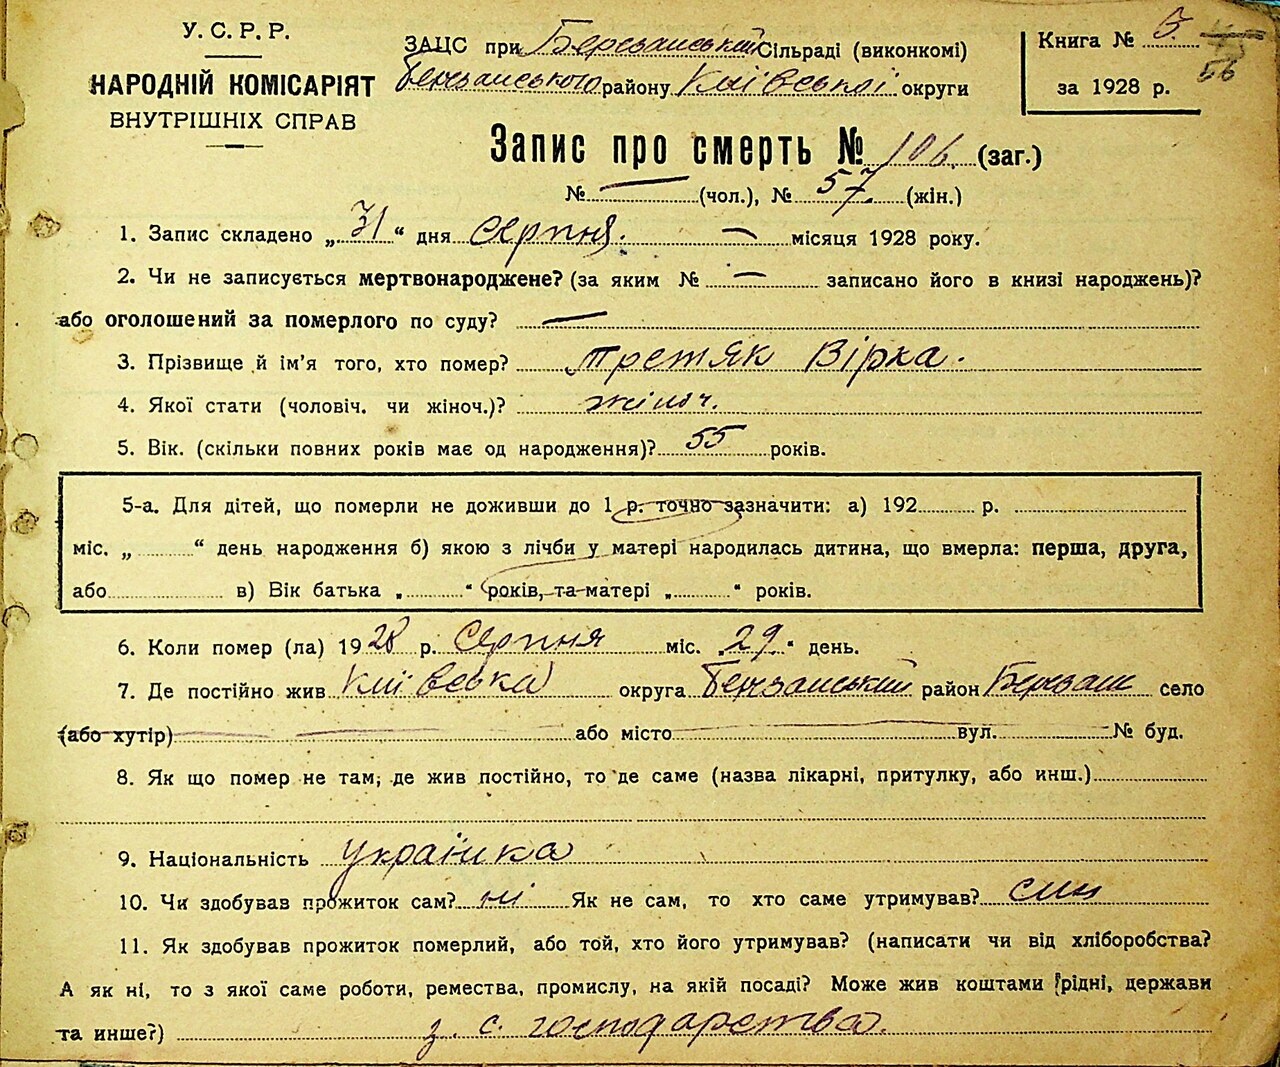 У. С. Р. Р.
НАРОДНІЙ КОМІСАРІЯТ
ВНУТРІШНІХ СПРАВ
ЗАЦС при Березанській Сільраді (виконкомі)
Березанського району Київської округи
Книга № 3
56
за 1928 р.
Запис про смерть № 106. (заг.)
№ — (чол.), № 57. (жін.)
1. Запис складено „31“ дня серпня. — місяця 1928 року.
2. Чи не записується мертвонароджене? (за яким № — записано його в книзі народжень)?
або оголошений за померлого по суду? —
3. Прізвище й ім'я того, хто помер? Третяк Вірка.
4. Якої стати (чоловіч. чи жіноч.)? жіноч.
5. Вік. (скільки повних років має од народження)? 55 років.
5-а. Для дітей, що померли не доживши до 1 р. точно зазначити: а) 192 р.
міс. „ “ день народження б) якою з лічби у матері народилась дитина, що вмерла: перша, друга,
або в) Вік батька „ “ років, та матері „ “ років.
6. Коли помер (ла) 1928 р. серпня міс. „29“ день.
7. Де постійно жив Київська округа Березанський район Березань село
(або хутір) або місто вул. № буд.
8. Як що помер не там, де жив постійно, то де саме (назва лікарні, притулку, або инш.)
9. Національність українка
10. Чи здобував прожиток сам? ні Як не сам, то хто саме утримував? син
11. Як здобував прожиток померлий, або той, хто його утримував? (написати чи від хліборобства?
А як ні, то з якої саме роботи, ремества, промислу, на якій посаді? Може жив коштами рідні, держави
та инше?) з. с. господарства.